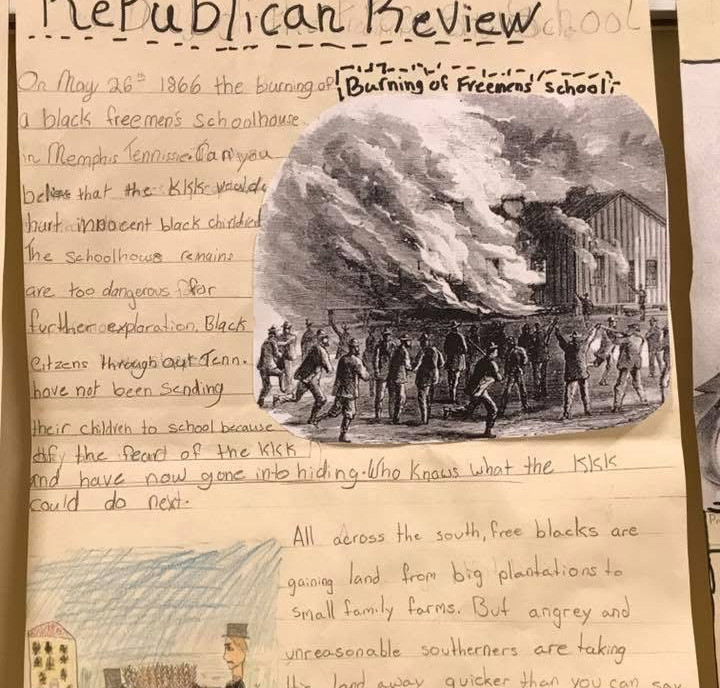 Republican Review
On May 26th 1866 the burning of
Burning of Freemens' school
a black freemen's schoolhouse
in Memphis Tennissie. Can you
that the KKK would
hurt innocent black
The schoolhouse remains
are too dangerous for
further exploration. Black
Citzens through out Tenn.
have not been sending
their children to school because
of the fear of the KKK
and have now gone into hiding. Who knows what the KKK
could do next.
All across the south, free blacks are
gaining land from big plantations to
small family farms. But angrey and
unreasonable southerners are taking
land away quicker than you can say